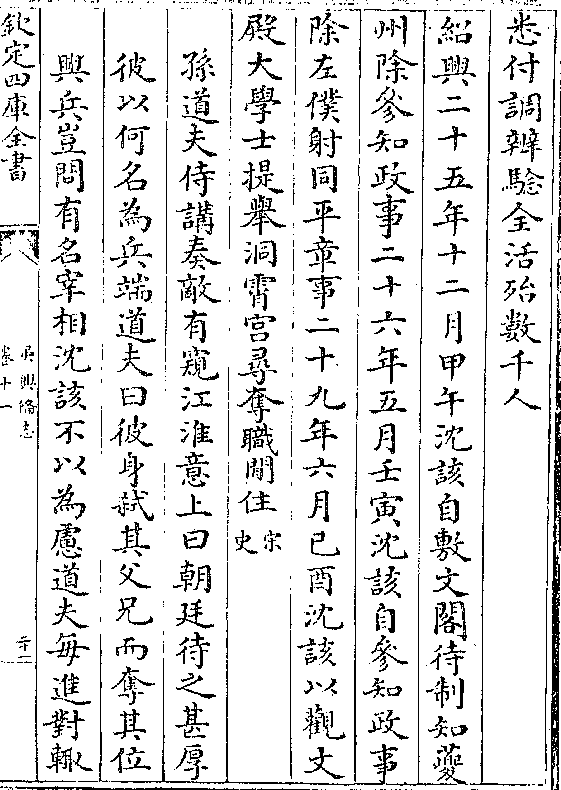 悉付調辨驗全活殆數千人
紹興二十五年十二月甲午沈該自敷文閣待制知夔
州除參知政事二十六年五月壬寅沈該自參知政事
除左僕射同平章事二十九年六月己酉沈該以觀文
殿大學士提舉洞霄宫尋奪職閒住宋史
孫道夫侍講奏敵有窺江淮意上曰朝廷待之甚厚
彼以何名為兵端道夫曰彼身弑其父兄而奪其位
興兵豈問有名宰相沈該不以為慮道夫每進對輙
欽定四庫全書
吳興備志
卷十一